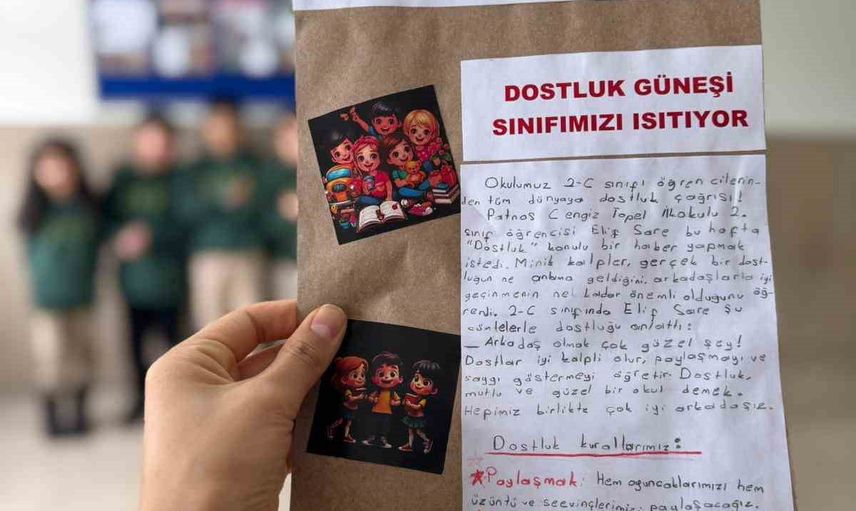 DOSTLUK GÜNEŞİ
SINIFIMIZI ISITIYOR
Okulumuz 2-C sınıfı öğrencilerin-
den tüm dünyaya dostluk çağrısı!
Patnos Cengiz Topel İlkokulu 2.
sınıf öğrencisi Elif Sare bu hafta
"Dostluk" konulu bir haber yapmak
istedi. Minik kalpler, gerçek bir dost-
luğun ne anlama geldiğini, arkadaşlarla iyi
geçinmenin ne kadar önemli olduğunu öğ-
rendi. 2-C sınıfında Elif Sare şu
cümlelerle dostluğu anlattı:
– Arkadaş olmak çok güzel şey!
Dostlar iyi kalpli olur, paylaşmayı ve
saygı göstermeyi öğretir. Dostluk,
mutlu ve güzel bir okul demek.
Hepimiz birlikte çok iyi arkadaşız.
Dostluk kurallarımız:
Paylaşmak: Hem oyuncaklarımızı hem
üzüntü ve sevinçlerimizi paylaşacağız.